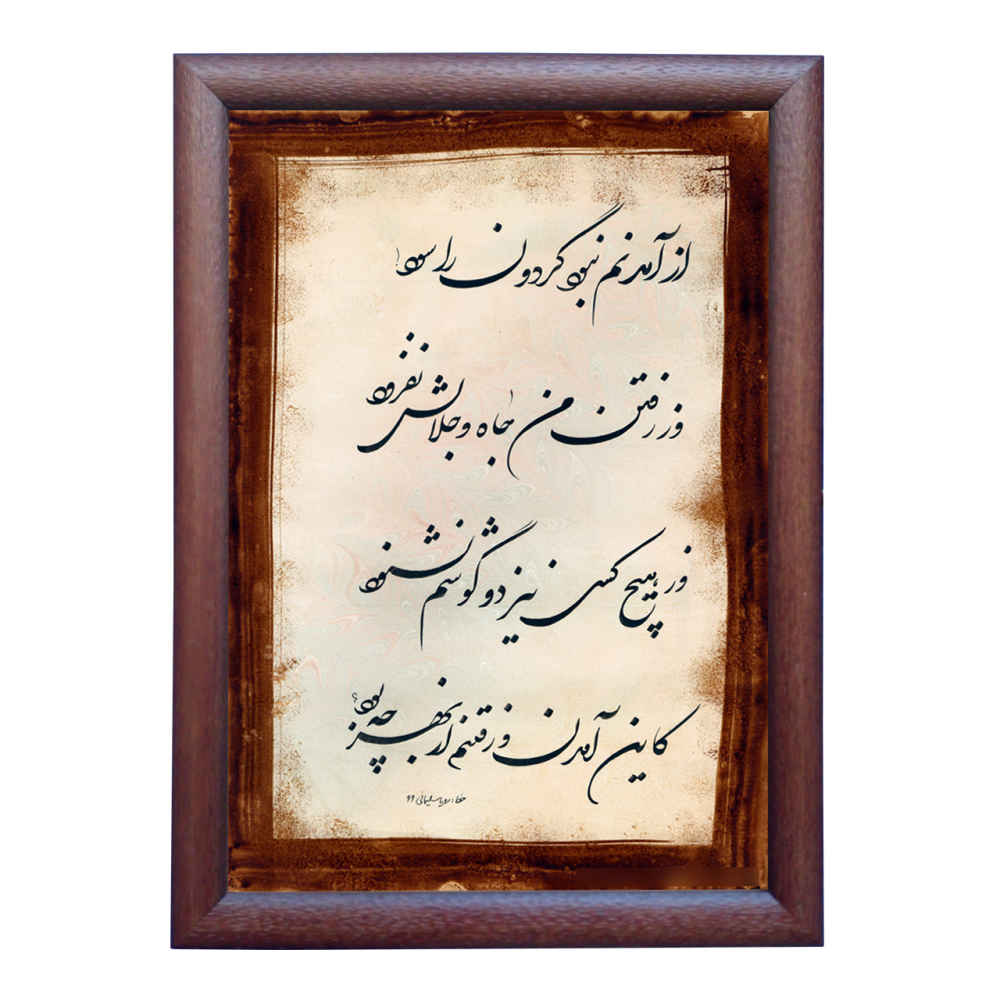 از آمدنم نبود گردون را سود
وز رفتن من جاه و جلالش نفزود
وز هیچ کسی نیز دو گوشم نشنود
کاین آمدن و رفتنم از بهر چه بود؟
خط: